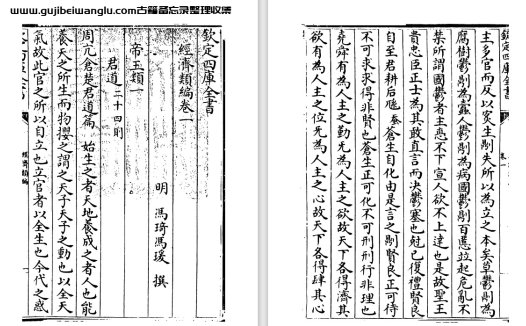 www.gujibeiwanglu.com古籍备忘录整理收集
欽定四庫全書
經濟類編卷一
明 馮琦馮瑗 撰
帝王類一
君道二十四則
周亢倉楚君道篇 始生之者天地養成之者人也能
養天之所生而物攖之謂之天子天子之動也以全天
氣故此官之所以自立也立官者以全生也今代之惑
經濟類編
欽定四庫全書
主多官而反以害生則失所以為立之本矣草鬱則為
腐樹鬱則為蠹人鬱則為病國鬱則百慝並起危亂不
禁所謂國鬱者主悳不下宣人欲不上達也是故聖王
貴忠臣正士為其敢直言而決鬱塞也尅己復禮賢良
自至君耕后蠶蒼生自化由是言之則賢良正可待
不可求求得非賢也蒼生正可化不可刑刑行非理也
堯舜有為人主之勤无為人主之欲故天下各得濟其
欲有為人主之位无為人主之心故天下各得肆其心